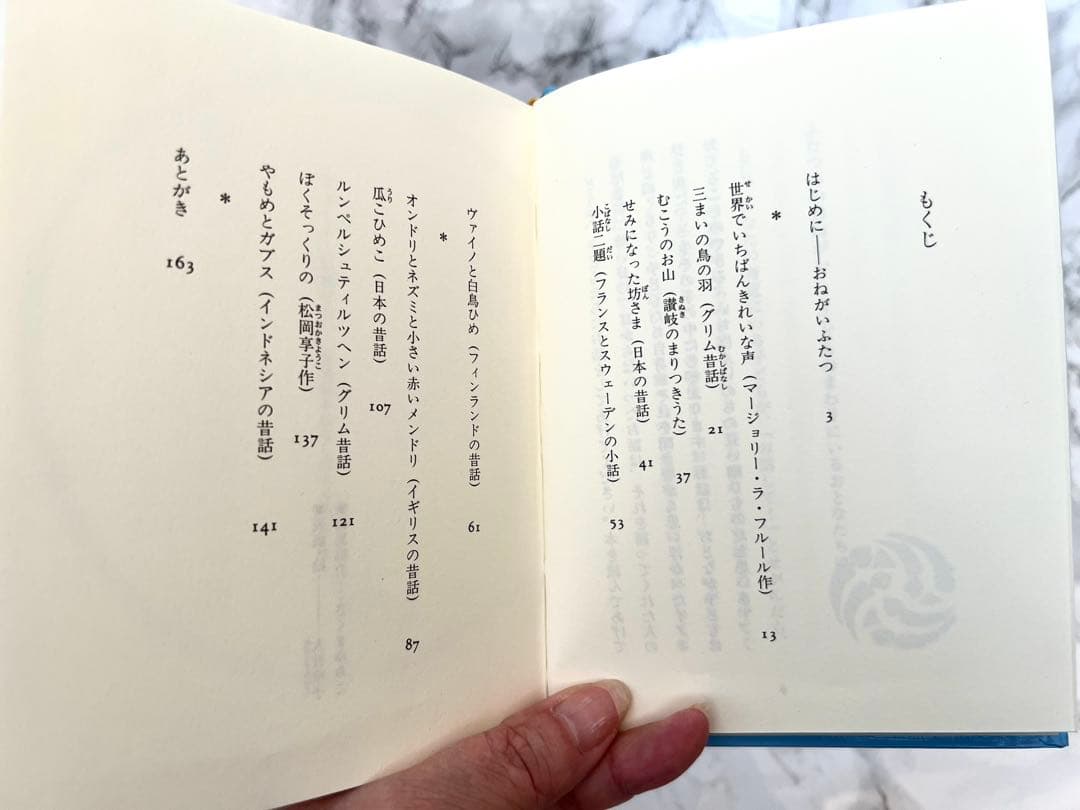 もくじ
はじめに――おねがいふたつ 3
*
世界でいちばんきれいな声（マージョリー・ラ・フルール作） 13
三まいの鳥の羽（グリム昔話） 21
むこうのお山（讃岐のまりつきうた） 37
せみになった坊さま（日本の昔話） 41
小話二題（フランスとスウェーデンの小話） 53
ヴァイノと白鳥ひめ（フィンランドの昔話） 61
*
オンドリとネズミと小さい赤いメンドリ（イギリスの昔話） 87
瓜こひめこ（日本の昔話） 107
ルンペルシュティルツヘン（グリム昔話） 121
ぼくそっくりの（松岡享子作） 137
やもめとガブス（インドネシアの昔話） 141
*
あとがき 163